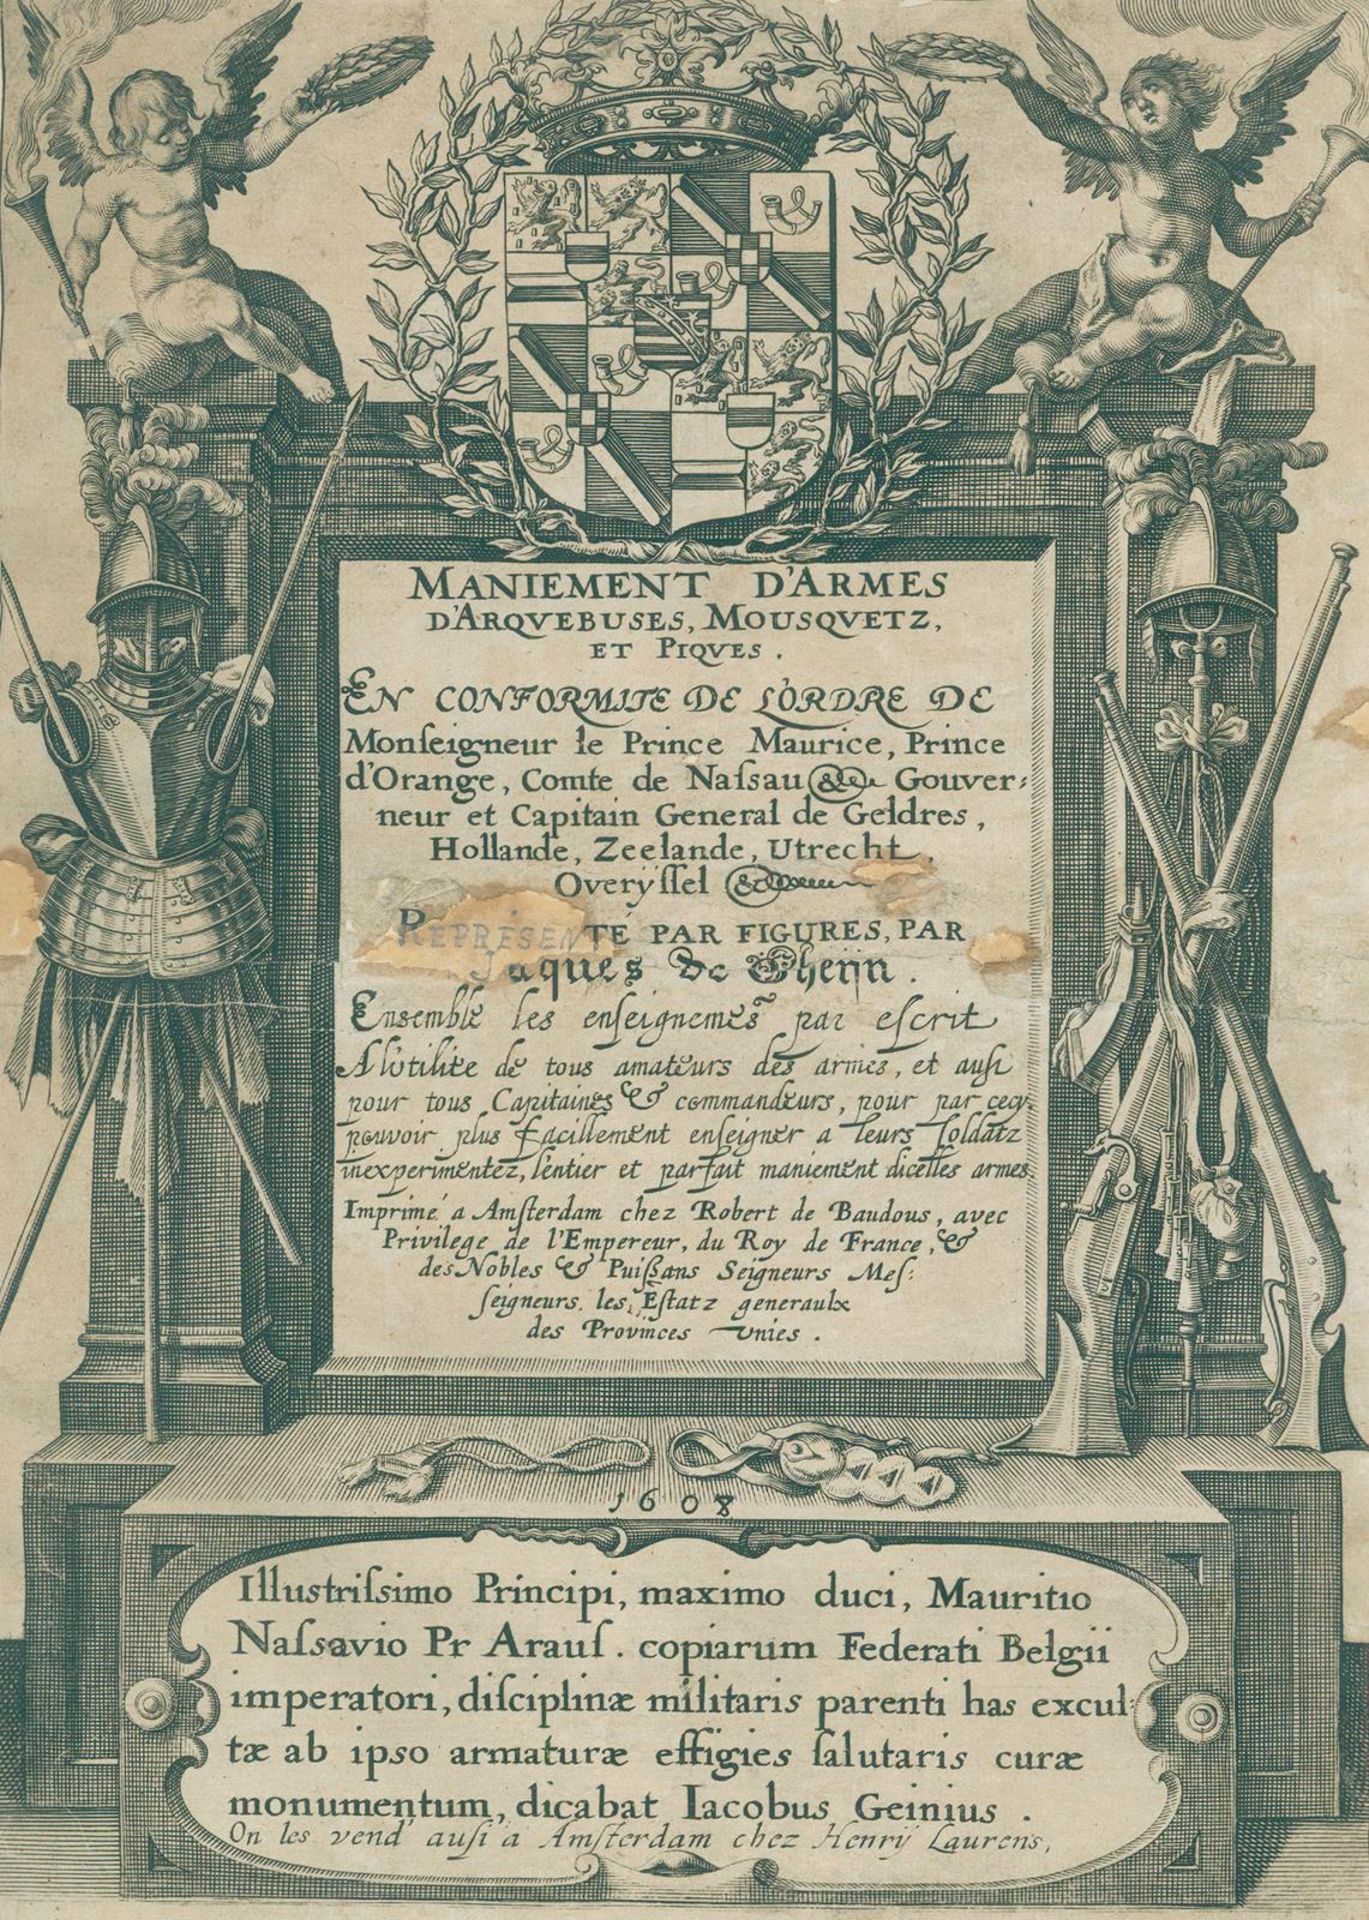 MANIEMENT D'ARMES
D'ARQVEBUSES, MOUSQVETZ,
ET PIQVES.
EN CONFORMITE DE L'ORDRE DE
Monſeigneur le Prince Maurice, Prince
d'Orange, Comte de Naſsau &c. Gouver:
neur et Capitain General de Geldres,
Hollande, Zeelande, Utrecht,
Overÿſſel &c.
REPRÉSENTÉ PAR FIGURES, PAR
Jaques de Gheÿn.
Ensemble les enſeignemēs par eſcrit
A l'utilite de tous amateurs des armes, et auſi
pour tous Capitaines & commandeurs, pour par cecy
pouvoir plus facillement enſeigner a leurs ſoldatz
inexperimentez, l'entier et parfait maniement dicelles armes.
Imprimé a Amſterdam chez Robert de Baudous, avec
Privilege de l'Empereur, du Roy de France, &
des Nobles & Puiſsans Seigneurs Meſ:
ſeigneurs les Eſtatz generaulx
des Provinces Vnies.
1608
Illustriſsimo Principi, maximo duci, Mauritio
Naſsavio Pr Arauſ. copiarum Federati Belgii
imperatori, diſciplinæ militaris parenti has excul:
tæ ab ipso armaturæ effigies ſalutaris curæ
monumentum, dicabat Iacobus Geinius.
On les vend auſi a Amſterdam chez Henrÿ Laurens,